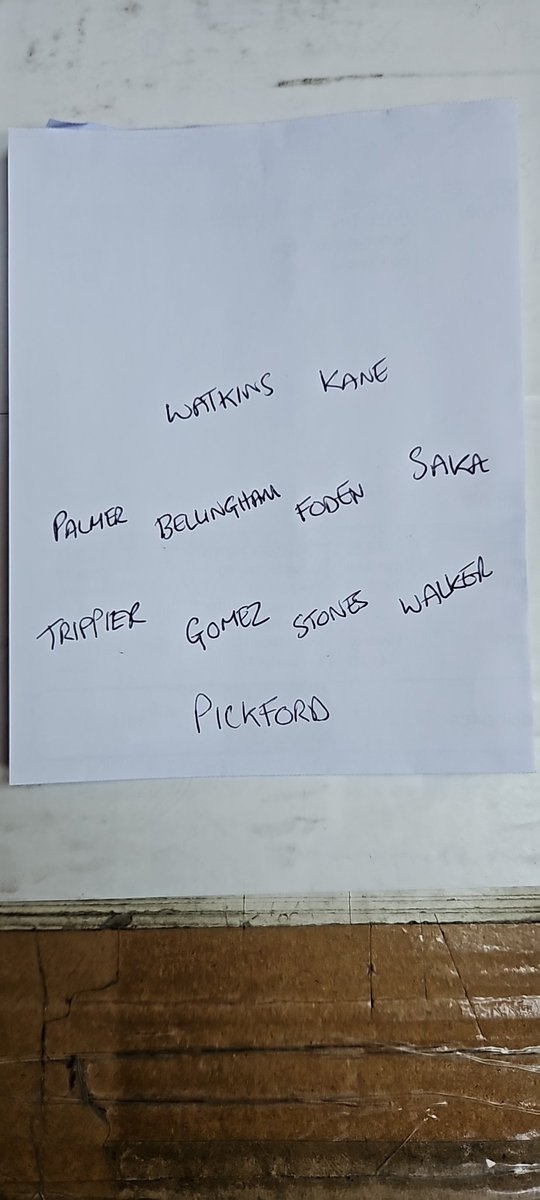 WATKINS KANE
PALMER BELLINGHAM FODEN SAKA
TRIPPIER GOMEZ STONES WALKER
PICKFORD